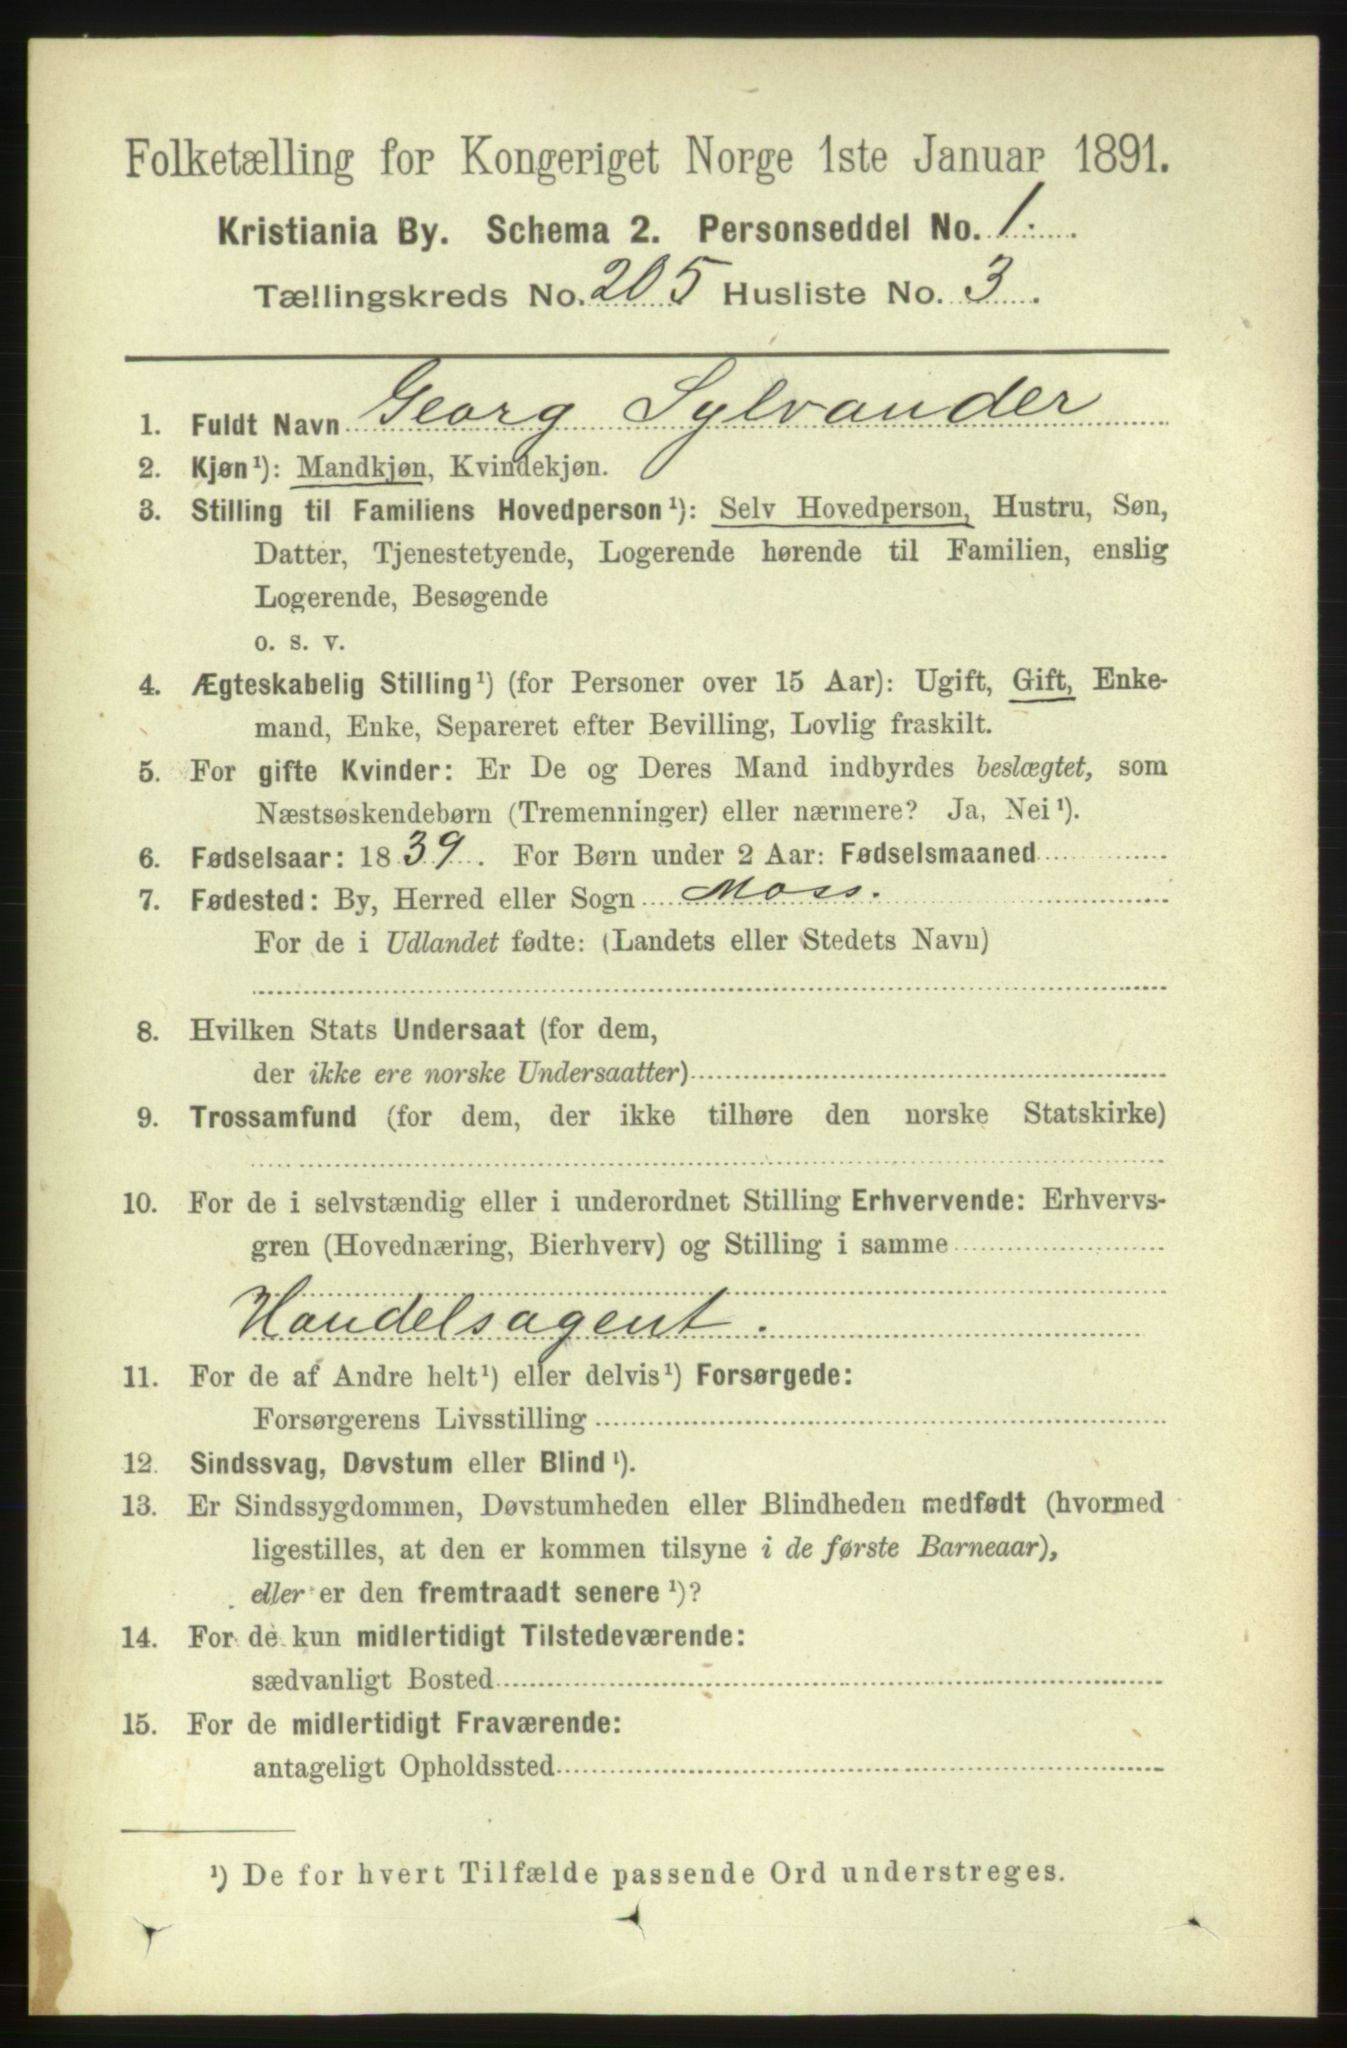 Folketælling for Kongeriget Norge 1ste Januar 1891.
Kristiania By. Schema 2. Personseddel No. 1.
Tællingskreds No. 205 Husliste No. 3.
1. Fuldt Navn Georg Sylvander
2. Kjøn¹): Mandkjøn, Kvindekjøn.
3. Stilling til Familiens Hovedperson¹): Selv Hovedperson, Hustru, Søn,
Datter, Tjenestetyende, Logerende hørende til Familien, enslig
Logerende, Besøgende
o. s. v.
4. Ægteskabelig Stilling¹) (for Personer over 15 Aar): Ugift, Gift, Enke-
mand, Enke, Separeret efter Bevilling, Lovlig fraskilt.
5. For gifte Kvinder: Er De og Deres Mand indbyrdes beslægtet, som
Næstsøskendebørn (Tremenninger) eller nærmere? Ja, Nei¹).
6. Fødselsaar: 1839. For Børn under 2 Aar: Fødselsmaaned
7. Fødested: By, Herred eller Sogn Moss.
For de i Udlandet fødte: (Landets eller Stedets Navn)
8. Hvilken Stats Undersaat (for dem,
der ikke ere norske Undersaatter)
9. Trossamfund (for dem, der ikke tilhøre den norske Statskirke)
10. For de i selvstændig eller i underordnet Stilling Erhvervende: Erhvervs-
gren (Hovednæring, Bierhverv) og Stilling i samme
Handelsagent.
11. For de af Andre helt¹) eller delvis¹) Forsørgede:
Forsørgerens Livsstilling
12. Sindssvag, Døvstum eller Blind¹).
13. Er Sindssygdommen, Døvstumheden eller Blindheden medfødt (hvormed
ligestilles, at den er kommen tilsyne i de første Barneaar),
eller er den fremtraadt senere¹)?
14. For de kun midlertidigt Tilstedeværende:
sædvanligt Bosted
15. For de midlertidigt Fraværende:
antageligt Opholdssted
¹) De for hvert Tilfælde passende Ord understreges.